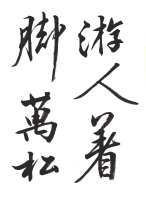 游人着
腳萬松